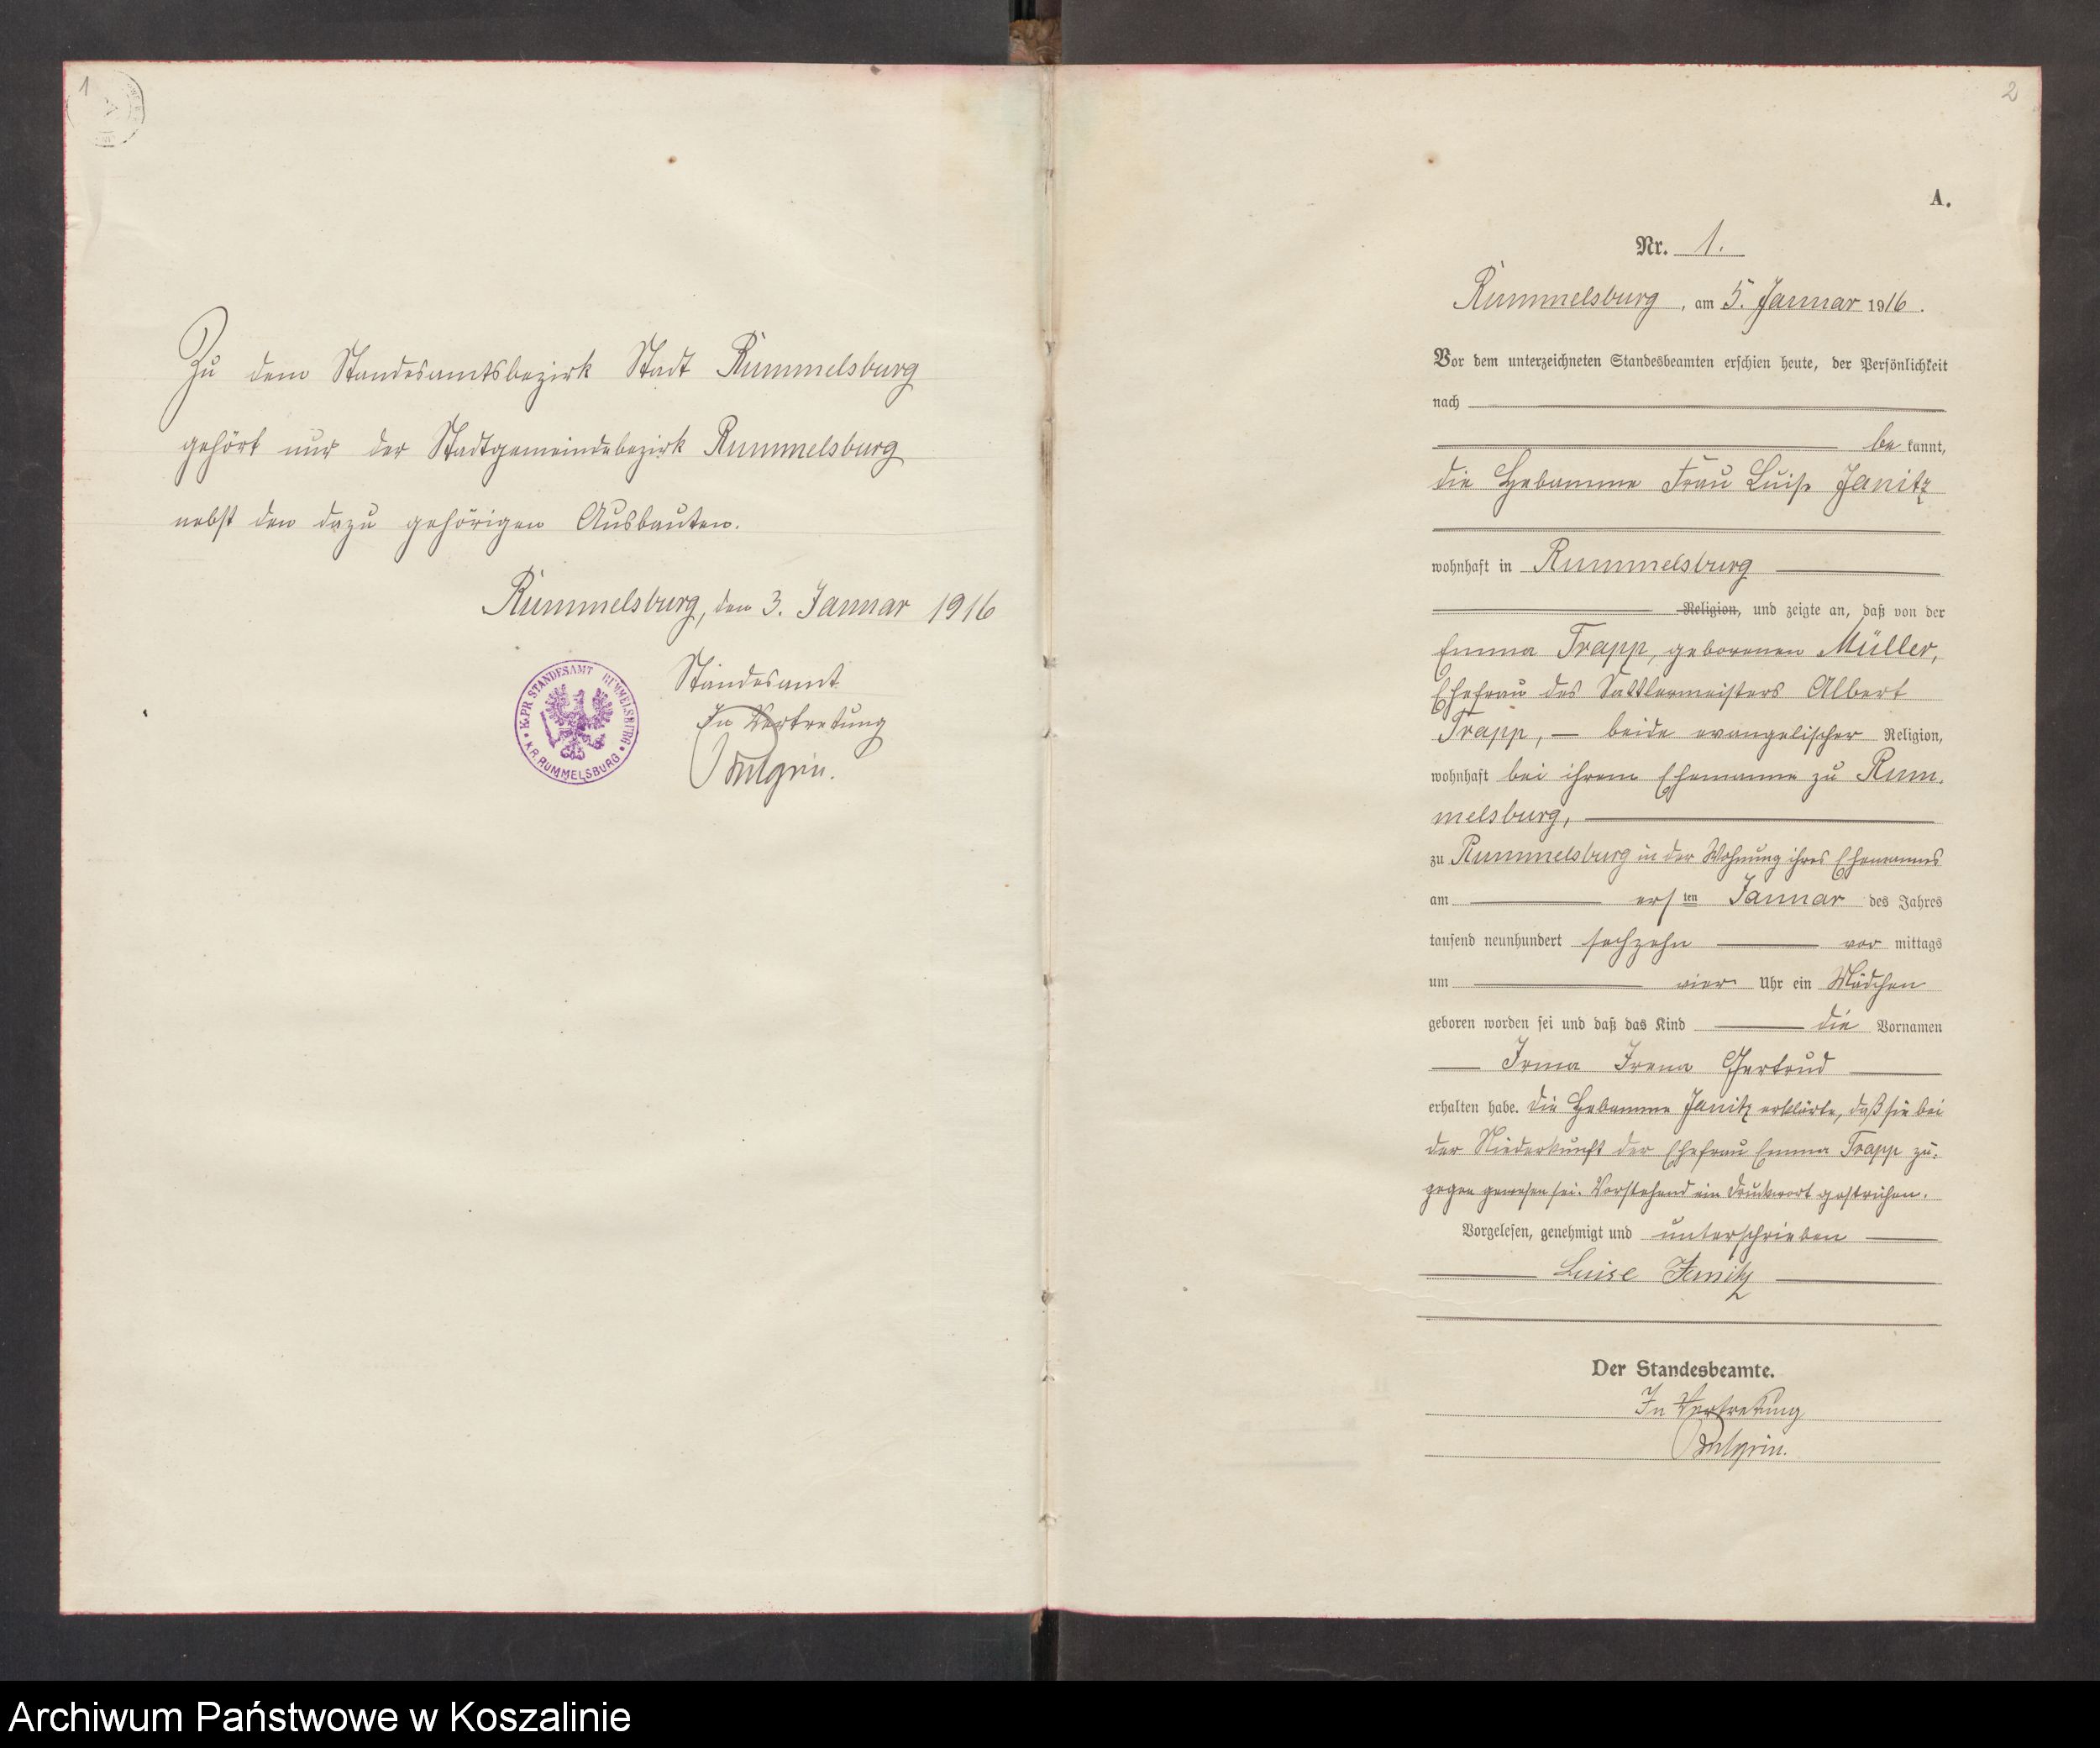 1
Zu dem Standesamtsbezirk Stadt Rummelsburg
gehört nur der Stadtgemeindebezirk Rummelsburg
nebst den dazu gehörigen Ausbauten.
Rummelsburg, den 3. Januar 1916
K. PR. STANDESAMT RUMMELSBURG
KR. RUMMELSBURG
Standesamt
In Vertretung
2
A.
Nr. 1.
Rummelsburg, am 5. Januar 1916.
Vor dem unterzeichneten Standesbeamten erschien heute, der Persönlichkeit
nach
be kannt,
die Hebamme Frau Luise Janitz
wohnhaft in Rummelsburg
Religion, und zeigte an, daß von der
Emma Trapp, geborenen Müller,
Ehefrau des Sattlermeisters Albert
Trapp, — beide evangelischer Religion,
wohnhaft bei ihrem Ehemanne zu Rum-
melsburg,
zu Rummelsburg in der Wohnung ihres Ehemannes
am ersten Januar des Jahres
tausend neunhundert sechzehn vor mittags
um vier Uhr ein Mädchen
geboren worden sei und daß das Kind die Vornamen
Irma Irena Gertrud
erhalten habe. Die Hebamme Janitz erklärte, daß sie bei
der Niederkunft der Ehefrau Emma Trapp zu-
gegen gewesen sei. Vorstehend ein Druckwort gestrichen.
Vorgelesen, genehmigt und unterschrieben
Luise Janitz
Der Standesbeamte.
In Vertretung
Archiwum Państwowe w Koszalinie